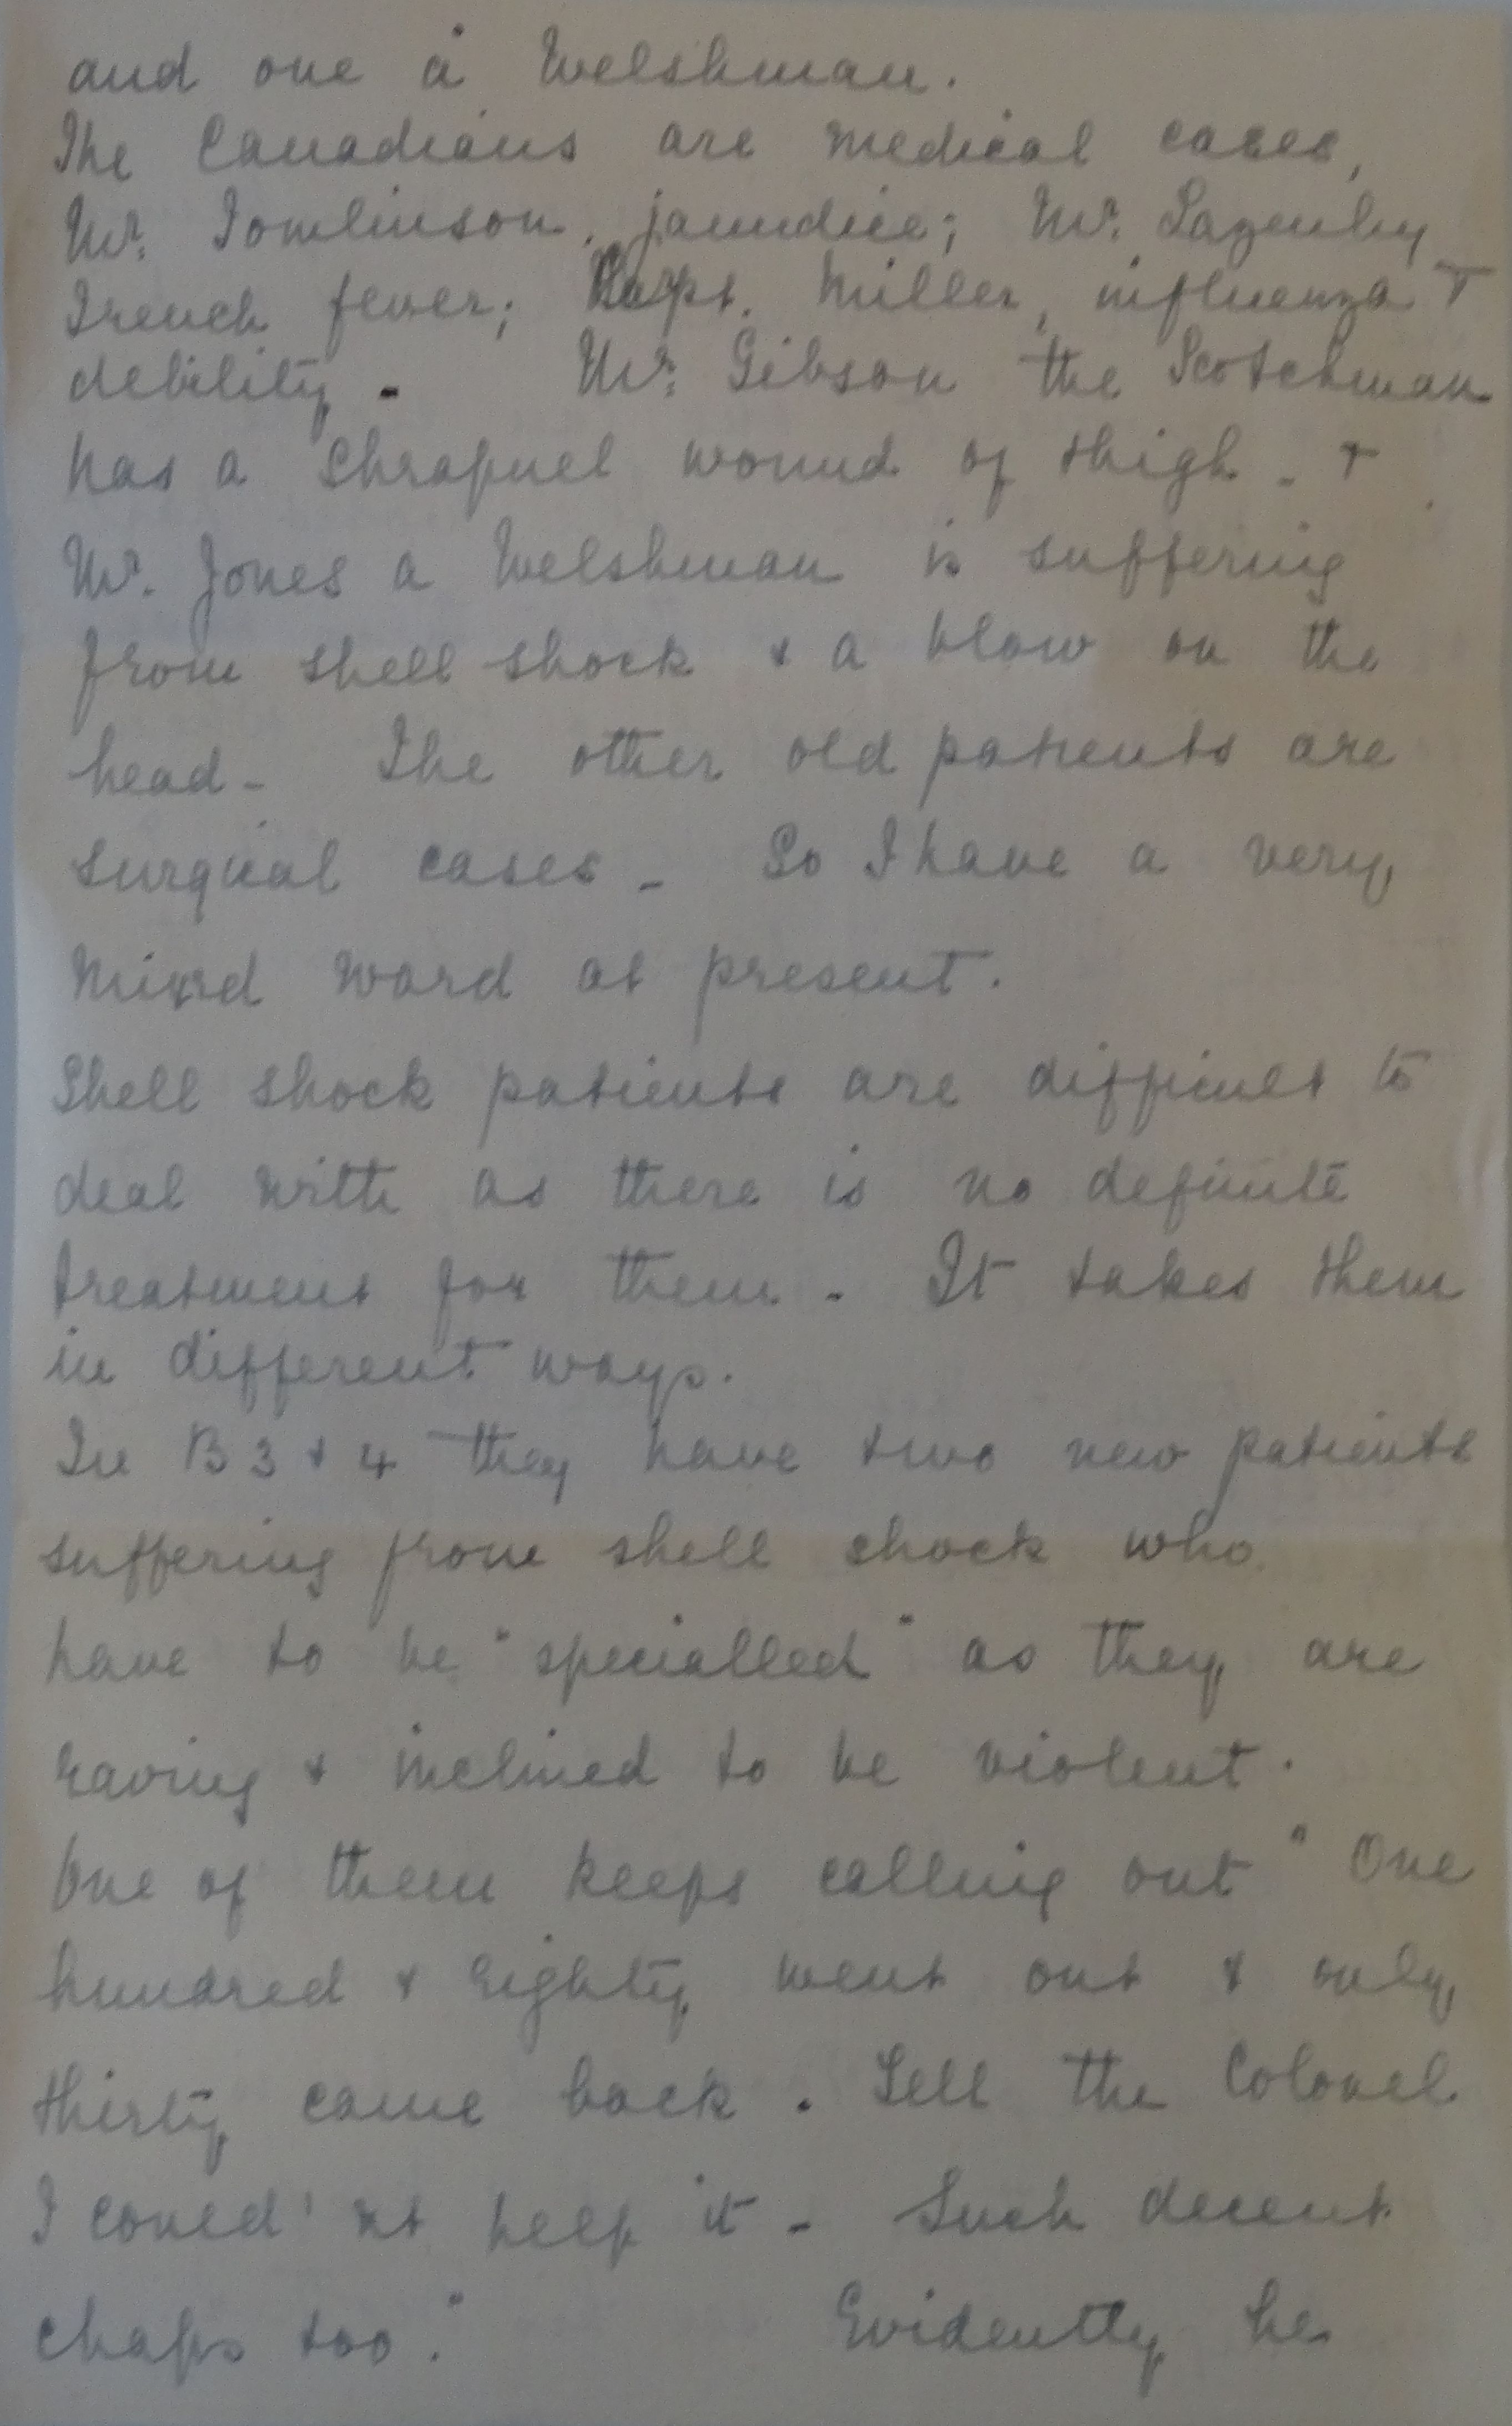 and one a Welshman.
The Canadians are medical cases,
Mr. Tomlinson, jaundice; Mr. Lazenby
Trench fever; Capt. Miller, influenza +
debility - Mr. Gibson the Scotchman
has a shrapnel wound of thigh - +
Mr. Jones a Welshman is suffering
from shell shock + a blow on the
head - The other old patients are
surgical cases - So I have a very
mixed ward at present.
Shell shock patients are difficult to
deal with as there is no definite
treatment for them - It takes them
in different ways.
In B 3 + 4 they have two new patients
suffering from shell shock who
have to be "specialled" as they are
raving + inclined to be violent.
One of them keeps calling out "One
hundred + eighty went out + only
thirty came back. Tell the Colonel
I could'nt help it - Such decent
chaps too." Evidently he